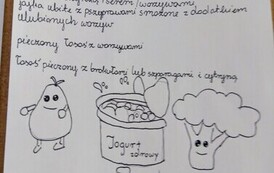 serem/warzywami
jajka ubite z przyprawami smażone z dodatkiem
ulubionych warzyw
pieczony łosoś z warzywami
łosoś pieczony z brokułami lub szparagami i cytryną
Jogurt
zdrowy